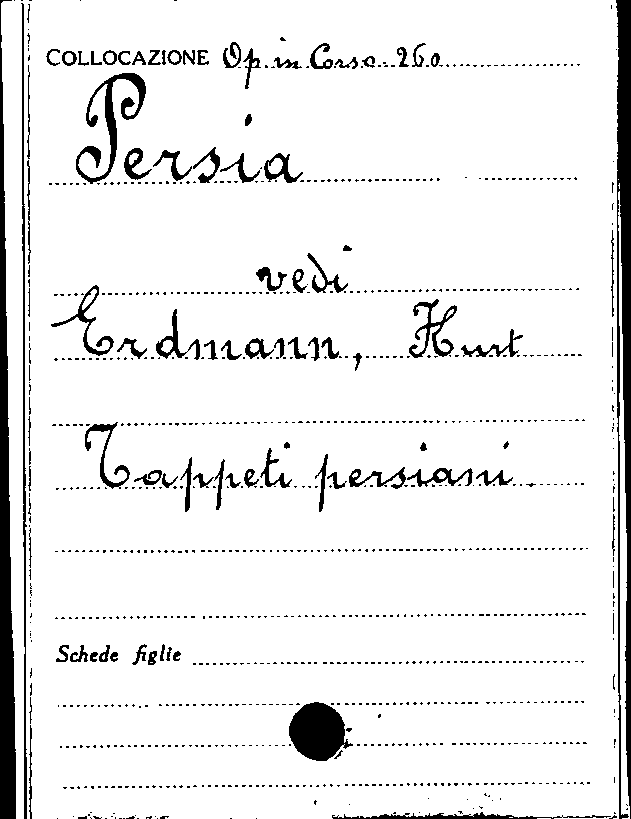 COLLOCAZIONE Op. in Corso. 260
Persia
vedi
Erdmann, Kurt
Tappeti persiani.
Schede figlie